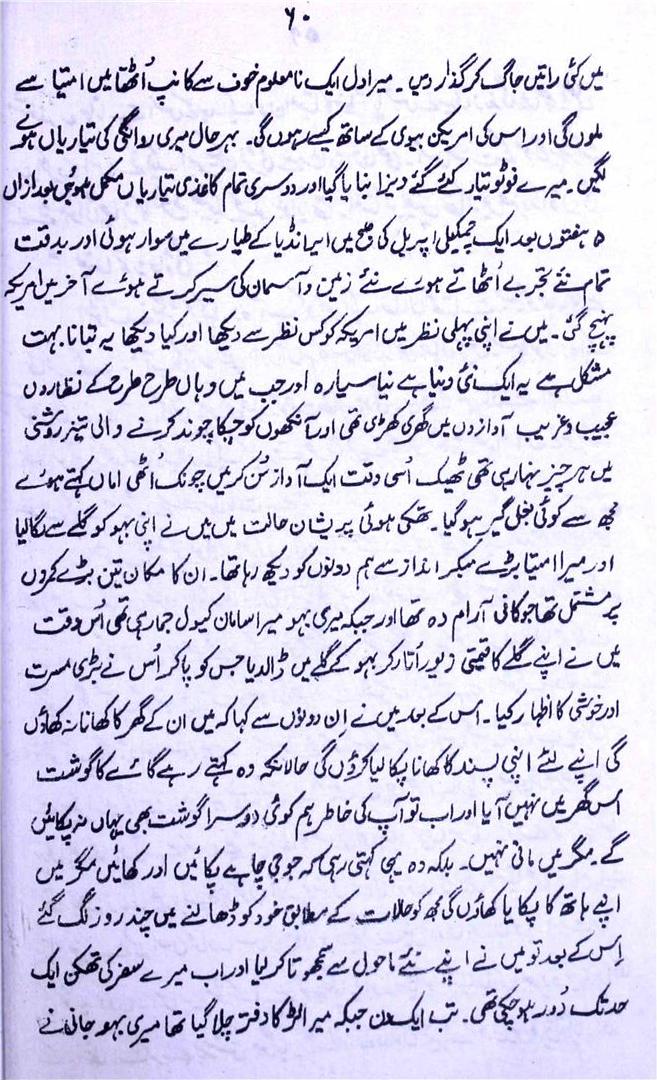 ۶۰
میں کئی راتیں جاگ کر گذار دیں ۔ میرا دل ایک نا معلوم خوف سے کانپ اُٹھتا میں امتیا سے
ملوں گی اور اس کی امریکن بیوی کے ساتھ کیسے رہوں گی۔ بہر حال میری روانگی کی تیاریاں ہونے
لگیں ۔ میرے فوٹو تیار کئے گئے ویزا بنا پا گیا اور دوسری تمام کاغذی تیاریاں مکمل ہوئیں بعد ازاں
۵ ہفتوں بعد ایک چمکیلی اپریل کی صبح میں ایر انڈیا کے طیارے میں سوار ہوئی اور بدقت
تمام نئے تجربے اُٹھاتے ہوئے نئے زمین و آسمان کی سیر کرتے ہوئے آخر میں امریکہ
پہنچ گئی ۔ میں نے اپنی پہلی نظر میں امریکہ کو کس نظر سے دیکھا اور کیا دیکھا یہ بتانا بہت
مشکل ہے یہ ایک نئی دنیا ہے نیا سیارہ اور جب میں وہاں طرح طرح کے نظاروں
عجیب و غریب آوازوں میں گھری کھڑی تھی اور آنکھوں کو چکا چوند کرنے والی تیز روشنی
میں ہر چیز نہا رہی تھی ٹھیک اُسی وقت ایک آواز سُن کر میں چونک اُٹھی اماں کہتے ہوئے
مجھ سے کوئی بغل گیر ہو گیا ۔ تھکی ہوئی پریشان حالت میں میں نے اپنی بہو کو گلے سے لگا لیا
اور میرا امتیا بڑے انداز سے ہم دونوں کو دیکھ رہا تھا۔ ان کا مکان تین بڑے کمروں
پر مشتمل تھا جو کافی آرام دہ تھا اور جبکہ میری بہو میرا سامان جما رہی تھی اُس وقت
میں نے اپنے گلے کا قیمتی زیور اُتار کر بہو کے گلے میں ڈالدیا جس کو پا کر اُس نے بڑی مسرت
اور خوشی کا اظہار کیا ۔ اس کے بعد میں نے اِن دونوں سے کہا کہ میں ان کے گھر کا کھانا نہ کھاؤں
گی اپنے لئے اپنی پسند کا کھانا پکا لیا کروں گی حالانکہ وہ کہتے رہے گائے کا گوشت
اس گھر میں نہیں آیا اور اب تو آپ کی خاطر ہم کوئی دوسرا گوشت بھی یہاں نہ پکائیں
گے ۔ مگر میں مانی نہیں۔ بلکہ وہ یہی کہتی رہی کہ جو جی چاہے پکائیں اور کھائیں مگر میں
اپنے ہاتھ کا پکایا کھاؤں گی مجھ کو حالات کے مطابق خود کو ڈھالنے میں چند روز لگ گئے
اِس کے بعد تو میں نے اپنے نئے ماحول سے سمجھوتا کر لیا اور اب میرے سفر کی تھکن ایک
حد تک دُور ہو چکی تھی۔ تب ایک دن جبکہ میرا لڑکا دفتر چلا گیا تھا میری بہو جانی نے